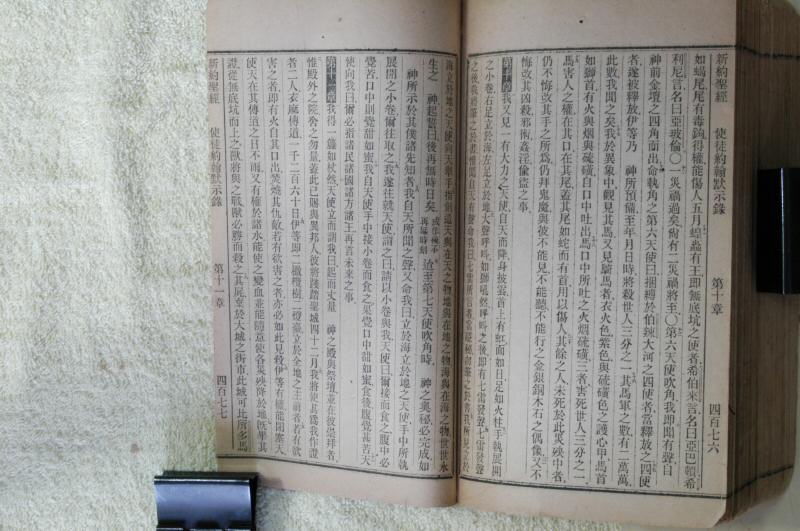 新約聖經　使徒約翰默示錄　第十章　四百七六
如蝎尾尾有毒鈎得權能傷人五月蝗蟲有王即無底坑之使者希伯來言名曰亞巴頓希
利尼言名曰亞玻倫〇一災禍過矣尙有二災禍將至〇第六天使吹角我即聞有聲自
神前金壇之四角而出命執角之第六天使曰捆縛於伯辣大河之四使者當釋放之四使
者遂被釋放伊等乃　神所預備至年月日時將殺世人三分之一其馬軍之數有二萬萬
此數我聞之矣我於異象中觀見其馬又見騎馬者衣火色紫色與硫磺色之護心甲馬首
如獅首有火與烟與硫磺自口中吐出馬口中所吐之火烟硫磺三者害死世人三分之一
馬害人之權在其口在其尾蓋其尾如蛇而有首用以傷人其餘之人未死於此災殃中者
仍不悔改其手之所爲仍拜鬼魔與彼不能見不能聽不能行之金銀銅木石之偶像又不
悔改其凶殺邪術姦淫偷盜之事
第十章我又見一有大力之天使自天而降身披雲首上有虹面如日足如火柱手執展開
之小卷右足立於海左足立於地大聲呼叫如獅吼然呼叫之後即有七雷發聲七雷發聲
海立於地之天使向天舉手指創造天與在天之物地與在地之物海與在海之物世世永
生之　神起誓曰後再無時日矣　迨至第七天使吹角時　神之奧秘必完成如
神所示於其僕諸先知者我自天所聞之聲又命我曰立於海立於地之天使手中所執
展開之小卷爾往取之我遂往就天使謂之曰請以小卷與我天使曰爾接而食之腹中必
覺苦口中則覺甜如蜜我自天使手中接小卷而食之果覺口中甜如蜜食後腹覺甚苦天
使向我曰爾必指諸民諸國諸方諸王再言未來之事
第十一章我得一葦如杖然天使立而謂我曰起而丈量　神之殿與祭壇並在彼崇拜者
惟殿外之院舍之勿量蓋此已賜與異邦人彼將踐踏聖城四十二月我將使其爲我作證
者二人衣麻傳道一千二百六十日伊等即二橄欖樹二燈臺立於全地之主前者若有欲
害之者即有火自其口出焚燒其仇敵若有欲害之者亦必如此見殺伊等有權能閉塞天
使天在其傳道之日不雨又有權於諸水能使之變血並能隨意使各災殃降於地旣畢其
證從無底坑而上之獸將與之戰獸必勝而殺之其屍棄於大城之街市此城可比所多馬
新約聖經　使徒約翰默示錄　第十一章　四百七七